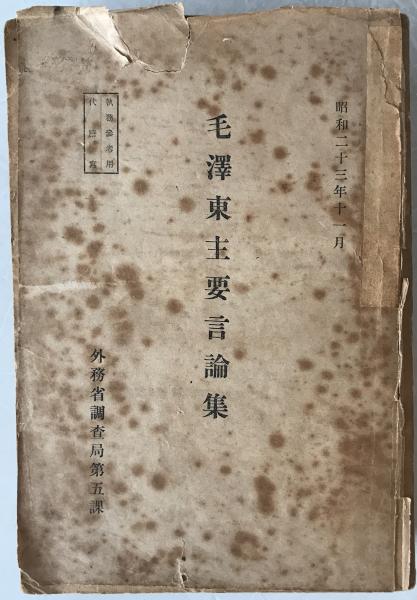 昭和二十三年十一月
毛澤東主要言論集
執務參考用
代謄寫
外務省調査局第五課